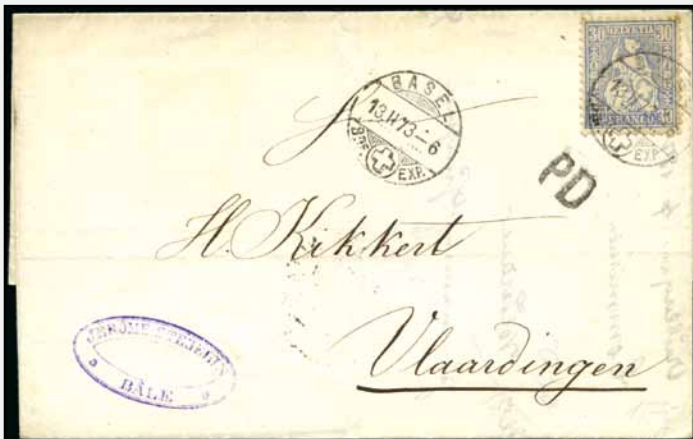 30 HELVETIA 30
FRANCO
BASEL
13 II 73 – 6
EXP.
PD
H. Kikkert
Vlaardingen
JEROME STEHLIN
BÂLE